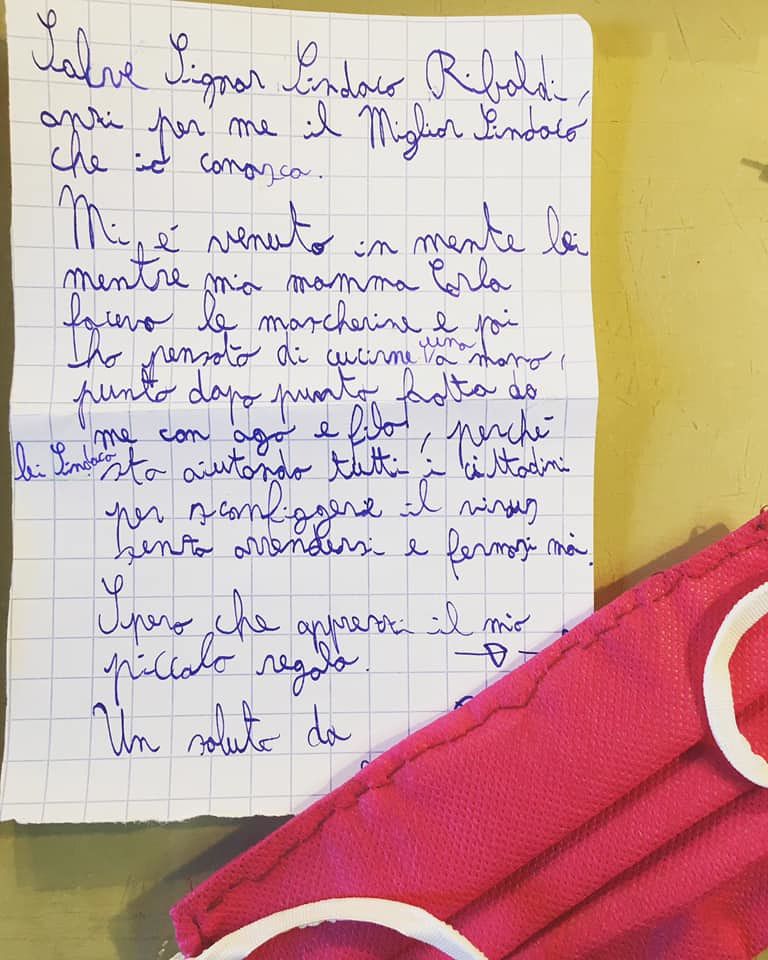 Salve Signor Sindaco Riboldi,
anzi per me il Miglior Sindaco
che io conosca.
Mi è venuto in mente lei
mentre mia mamma Carla
faceva le mascherine e poi
ho pensato di cucirne una a mano,
punto dopo punto fatta da
me con ago e filo, perché
lei Sindaco sta aiutando tutti i cittadini
per sconfiggere il virus
senza arrendersi e fermarsi mai.
Spero che apprezzi il mio
piccolo regalo.
Un saluto da